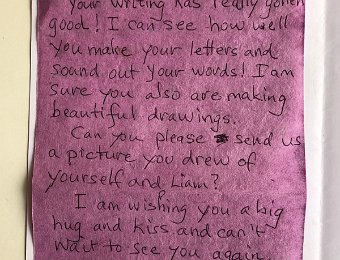 Your writing has really gotten
good! I can see how well
you make your letters and
sound out your words! I am
sure you also are making
beautiful drawings.
Can you please send us
a picture you drew of
yourself and Liam?
I am wishing you a big
hug and kiss and can't
wait to see you again.